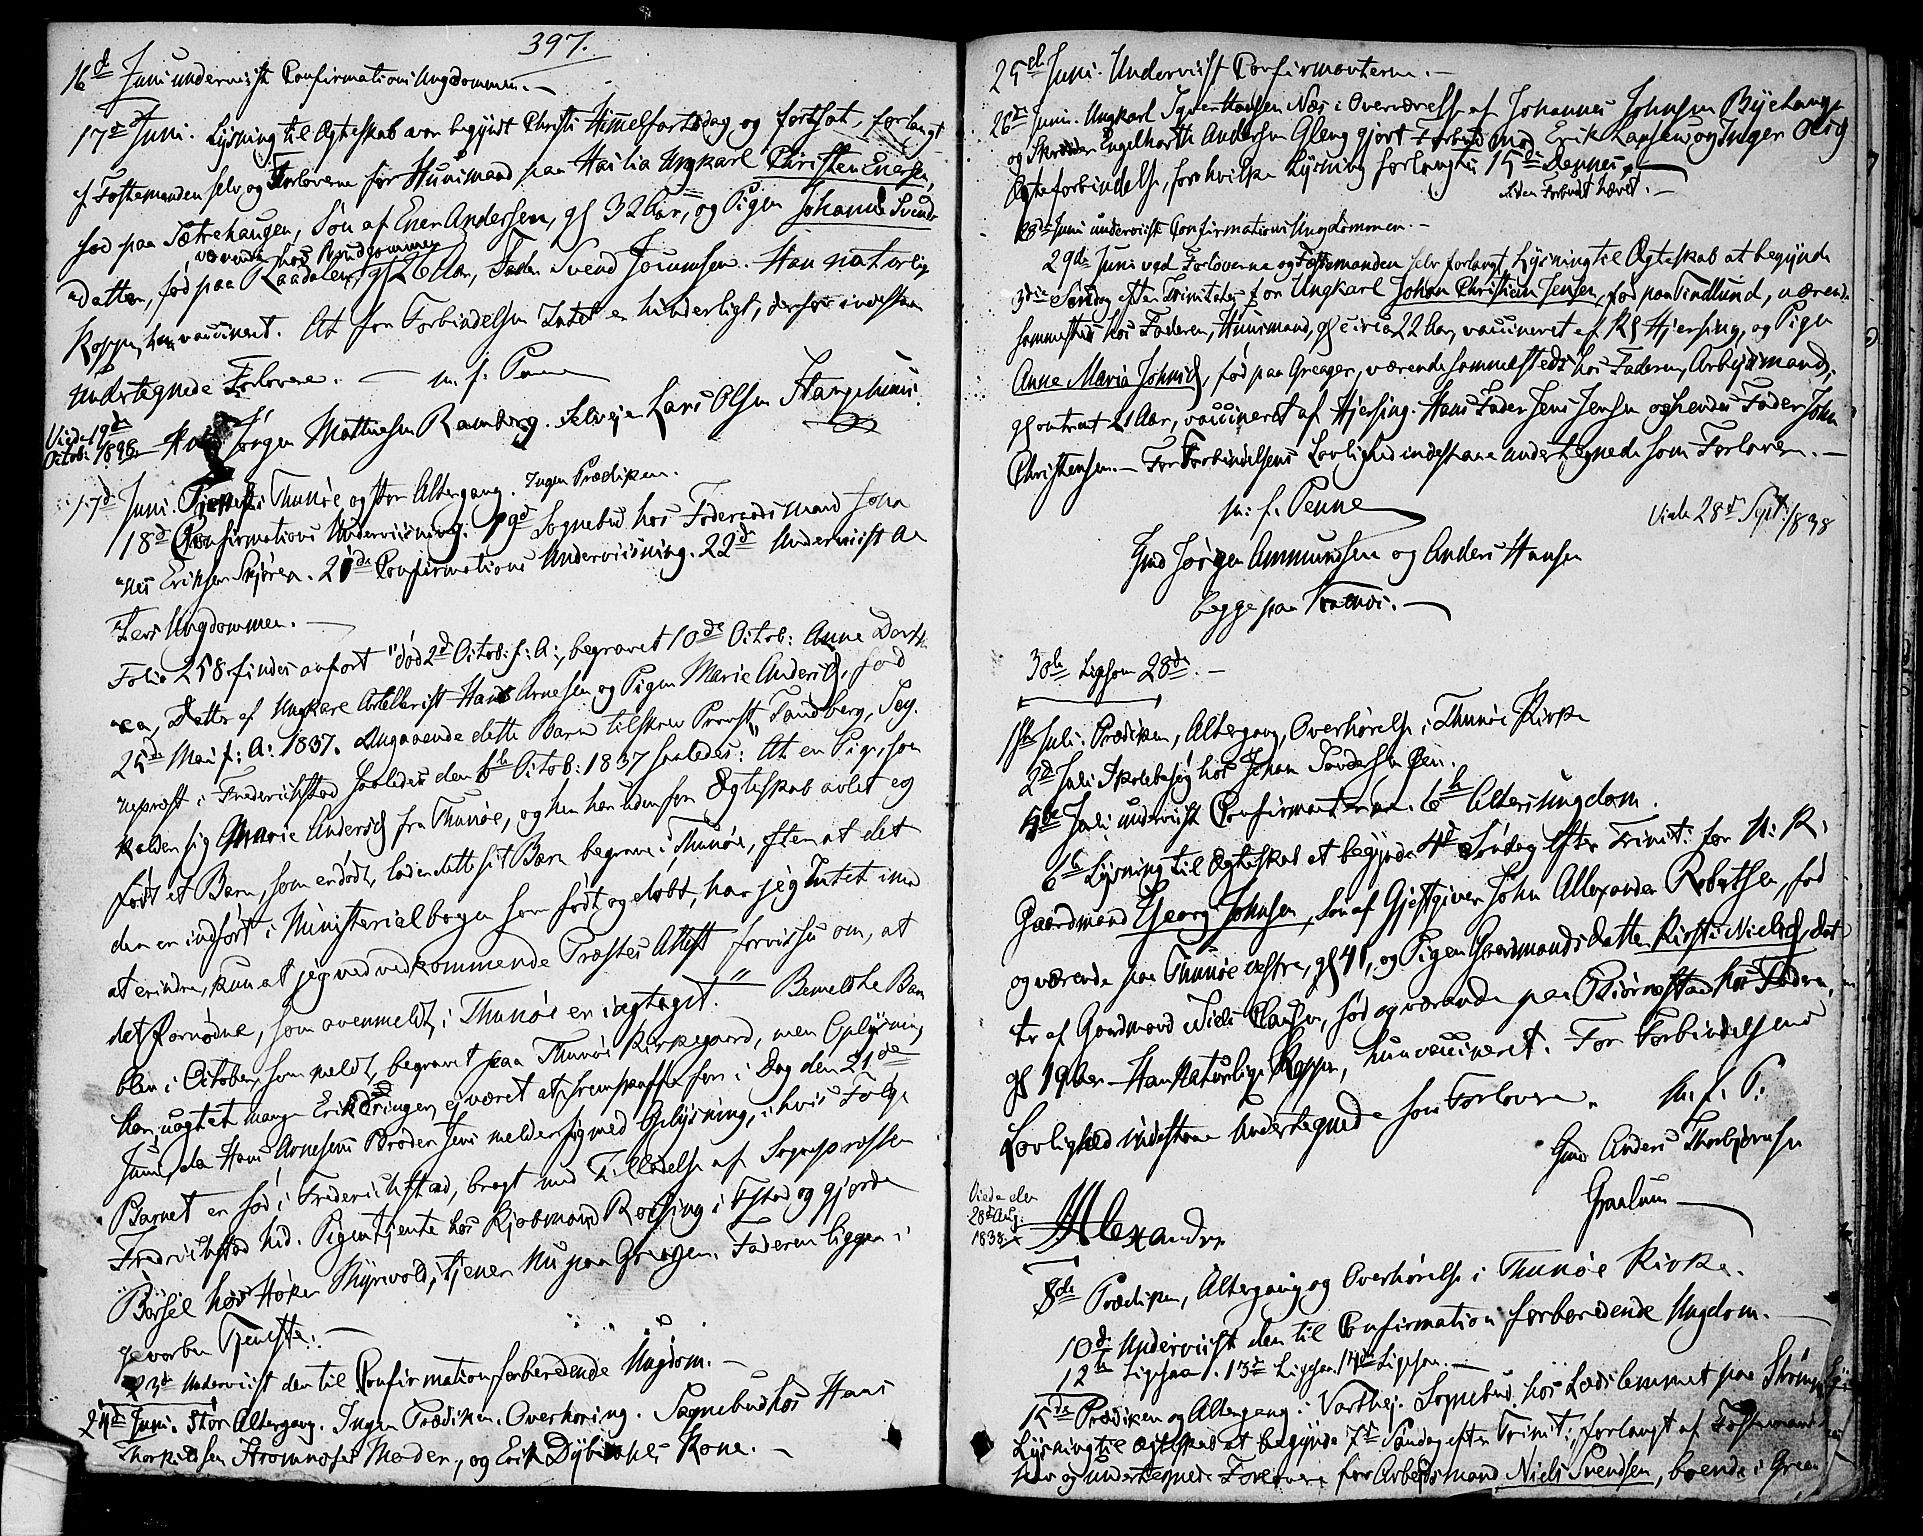 397.
16d Juni underviist Confirmations Ungdommen. —
17de Juni. Lysning til Ægteskab var begyndt Christi Himmelfartsdag og fortsat, forlangt
af Fæstemanden selv og Forloverne for Huusmand paa Ungkarl Christen Enersen,
fød paa Sætrehaugen, Søn af Ener Andersen, gl 32 Aar, og Pigen Johanne Svends
værende hos Brudgommen
datter, fød paa Raadalen, gl Aar, Fader Svend Han naturlig
Kopper, hun vaccineret. At for Forbindelsen Intet er hinderligt, derfor indestaae
undertegnede Forlovere. — m. f. Penne
Viede 19d
Octob:
Jørgen Mathiesen Ramberg. Selveier Lars Olsen
17d Juni. Thunøe og stor Altergang. Ingen Prædiken.
18d Confirmations Underviisning. 19d Sognebud hos Føderaadsmand Joha
nes Eriksen 21de Confirmations Underviisning. 22de Underviist Al
ters Ungdommen. —
Folio 258 findes anført "død 2d Octob: f: A:, begravet 10de Octob: Anne Doroth
ea, Datter af Ungkarl Artillerist Hans Arnesen og Pigen Marie Andersd, fød
25de Mai f: A: 1837. Angaaende dette Barn tilskrev Provst Tandberg, Sog
neprest i Frederichstad saaledes den 6te Octob: 1837 saaledes: "At en Pige, som
kalder sig Marie Andersd fra Thunøe, og her har udenfor Ægteskab avlet og
født et Barn, som er dødt, lader dette sit Barn begrave i Thunøe, efter at det
den er indført i Ministerialbogen som født og døbt, har jeg Intet imod
at erindre, kun at jeg ved vedkommende Præstes Attest forvisses om, at
det fornødne, som ovenmeldt, i Thunøe er iagttaget." — Bemeldte Barn
blev i October, som meldt, begravet paa Thunøe Kirkegaard, men Oplysning
har, uagtet mange Erindringer, ei været at fremskaffe før i Dag den 21de
Juni, da Hans Arnesens Broder Jens melder sig med Oplysning, i hvis Følge
Barnet er fød i Frederichstad, bragt med Tilladelse af Sognepresten
Fredrichstad hid. Pigen tjente hos Kjøbmand i Fstad og gjorde
Barsel hos Høker Thyrvold, tjener nu paa Greager. Faderen ligger i
gevorben Tjeneste. —
23d Underviist den til Confirmation forberedende Ungdom. —
24d Juni. Stor Altergang. Ingen Prædiken. Overhøring. Sognebud hos Hans
Thorkildsen Moder, og Erik Kone. —
25de Juni. Underviist Confirmanterne. —
26de Juni. Ungkarl Hansen Næs i Overværelse af Johannes Johnsen
og Skræder Engelhardt Andersen Gleng gjort Forbud mod Erik og Inger
Ægteforbindelse, for hvilke Lysning forlangtes 15de Dennes. —
Siden Forbudt hævet. —
28de Juni underviist Confirmations Ungdommen. —
29de Juni ved Forloverne og Fæstemanden selv forlangt Lysning til Ægteskab at begynde
3die Søndag efter Trinitatis for Ungkarl Johan Christian Jensen, fød paa Tindlund, værende
sammesteds hos Faderen, Huusmand, gl circa 22 Aar, vaccineret af Kl Hjersing, og Pigen
Anne Maria Johnsd, fød paa Greager, værende sammesteds hos Faderen, Arbeidsmand,
gl omtrent 21 Aar, vaccineret af Hjersing. Hans Fader Jens Jensen og hendes Fader John
Christensen. — For Forbindelsens Lovlighed indestaae undertegnede som Forlovere. —
m: f: Penne
Viede 28de Sept: 1838
Gmd Jørgen Ammundsen og Anders Hansen
begge paa —
30te Ligesom 28de. —
1ste Juli. Prædiken, Altergang, Overhørelse i Thunøe Kirke
2d Juli Skolebesøg hos Johan
5te Juli underviist Confirmanterne. 6te Altersungdom.
6te Lysning til Ægteskab at begynde 4de Søndag efter Trinit: for U: K:
Gaardmand Georg Johnsen, Søn af Gjestgiver John Allexander Robertsen, fød
og værende paa Thunøe vestre, gl 41, og Pigen Gaardmandsdatter Kirsti Nielsd, dat
ter af Gaardmand Niels Hansen, fød og værende paa Biørnstad hos Faderen,
gl 19 Aar. Han Naturlige Kopper, hun vaccineret. For Forbindelsens
Lovlighed indestaae Undertegnede som Forlovere. m. f. P:
Gmd Anders Thorbjørnsen
Graalum —
Viede den
28de Aug:
1838
Alexander
8de Prædiken, Altergang og Overhørelse i Thunøe Kirke.
10de Underviist den til Confirmation forberedende Ungdom. —
12te Ligesaa. 13de Ligesaa. 14de Ligesaa. —
15de Prædiken og Altergang i Varteig. Sognebud hos Lædslemmet paa
Lysning til Ægteskab at begynde 7de Søndag efter Trinit:, forlangt af Fæstemanden
selv og undertegnede Forlovere for Arbeidsmand Niels Svendsen, boende i Green